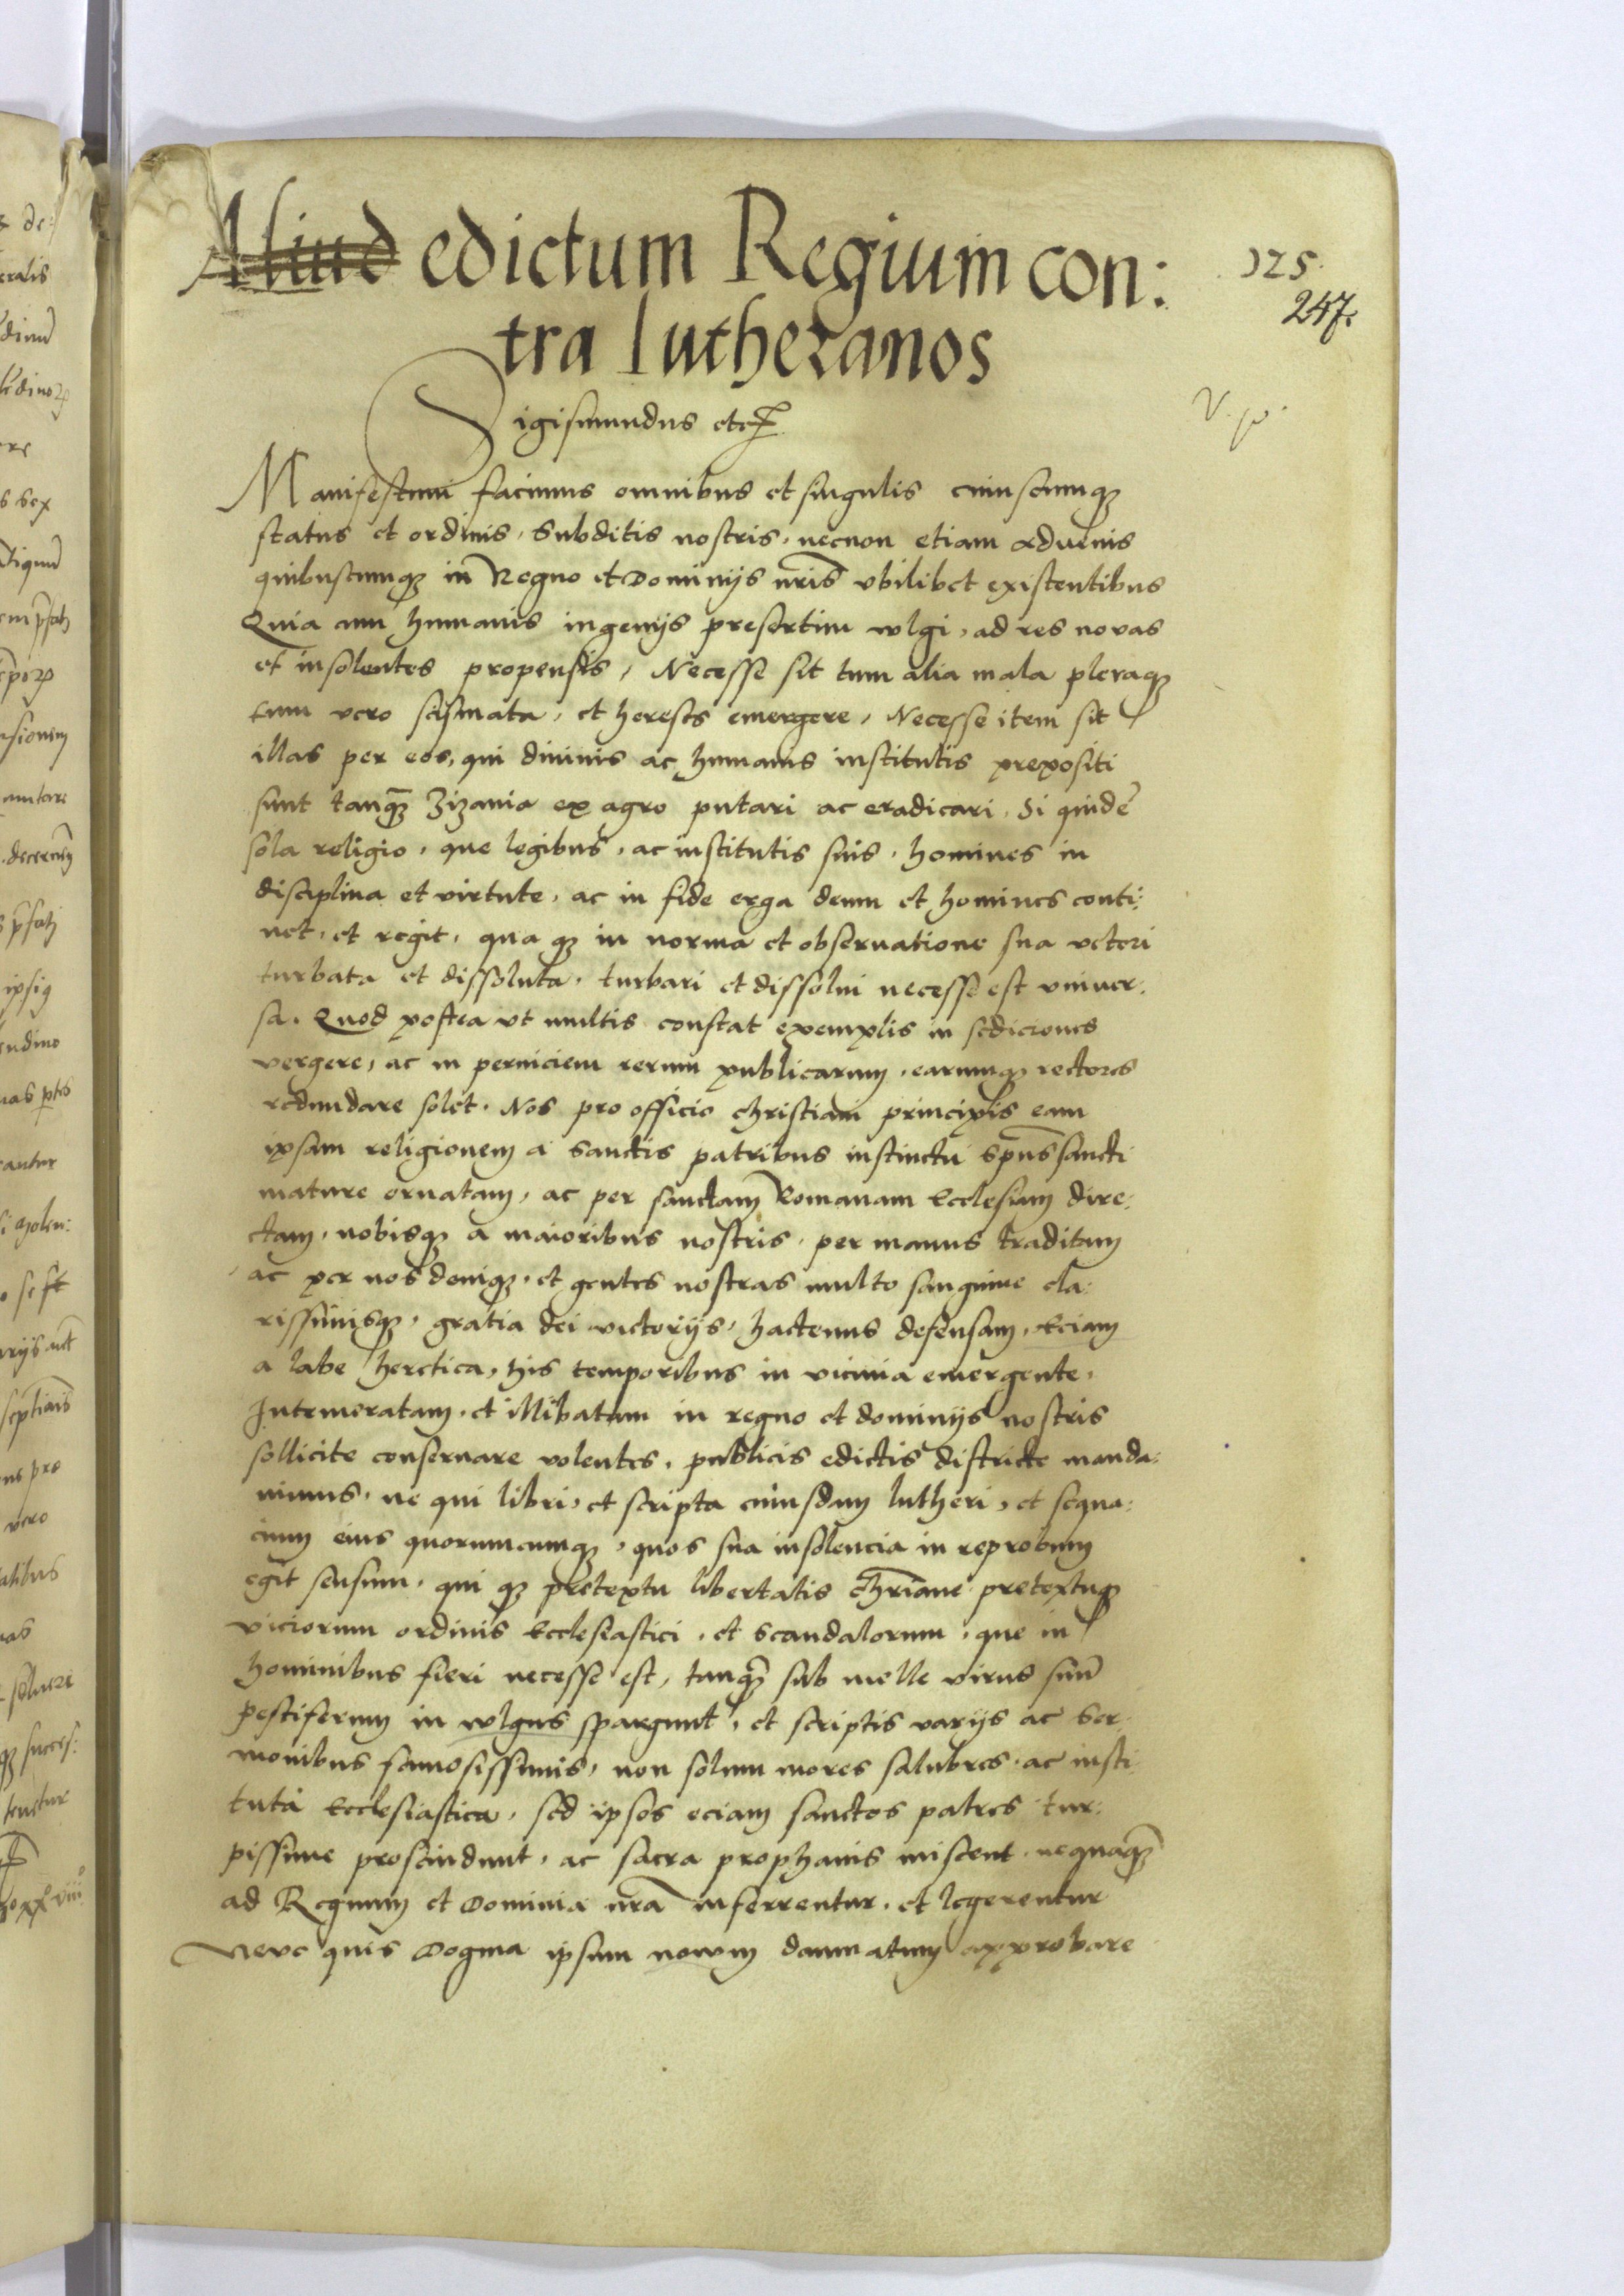 Aliud edictum Regium con:
tra lutheranos
125.
247.
Sigismundus etc
Manifestum facimus omnibus et singulis cuiuscumqꝫ
status et ordinis, Subditis nostris, necnon etiam advenis
quibuscumqꝫ in Regno et Dominijs nr̄is vbilibet existentibus
Quia cum humanis ingenijs presertim wlgi, ad res novas
et insolentes propensis, Necesse sit tum alia mala pleraqꝫ
tum vero scismata, et hereses emergere, Necesse item sit
illas per eos, qui diuinis ac humanis institutis prepositi
sunt tanqꝫ̄ Zizania ex agro putari ac eradicari. Si quidē
sola religio, que legibus, ac institutis suis, homines in
disciplina et virtute, ac in fide erga deum et homines conti:
net, et regit, qua qꝫ in norma et obseruatione sua veteri
turbata et dissoluta, turbari et dissolui necesse est vniuer:
sa. Quod postea vt multis constat exemplis in sediciones
vergere, ac in perniciem rerum publicarum, earumqꝫ rectores
redundare solet. Nos pro officio christiani principis eam
ipsam religionem a sanctis patribus instinctu sp̄us sancti
mature ornatam, ac per sanctam Romanam Ecclesiam dire:
ctam, nobisqꝫ a maioribus nostris, per manus traditam
ac per nos deniqꝫ, et gentes nostras multo sanguine cla:
rissimisqꝫ, gratia dei victorijs, hactenus defensam, Eciam
a labe heretica, his temporibus in vicinia emergente,
Intemeratam, et illibatam in regno et dominijs nostris
sollicite conseruare volentes, publicis edictis districte manda:
uimus, ne qui libri, et scripta cuiusdam lutheri, et sequa:
cium eius quorumcumqꝫ, quos sua insolencia in reprobum
egit sensum, qui qꝫ pretextu libertatis chr̄iane pretextuqꝫ
viciorum ordinis Ecclesiastici, et scandalorum, que in
hominibus fieri necesse est, tanqꝫ̄ sub melle virus suū
pestiferum in wlgus spargunt, et scriptis varijs ac ser:
monibus famosissimis, non solum mores salubres, ac insti:
tuta Ecclesiastica, sed ipsos eciam sanctos patres tur:
pissime proscindunt, ac sacra prophanis miscent, nequaqꝫ̄
ad Regnum et Dominia nr̄a inferrentur, et legerentur
Neve quis Dogma ipsum nowm damnatum approbare